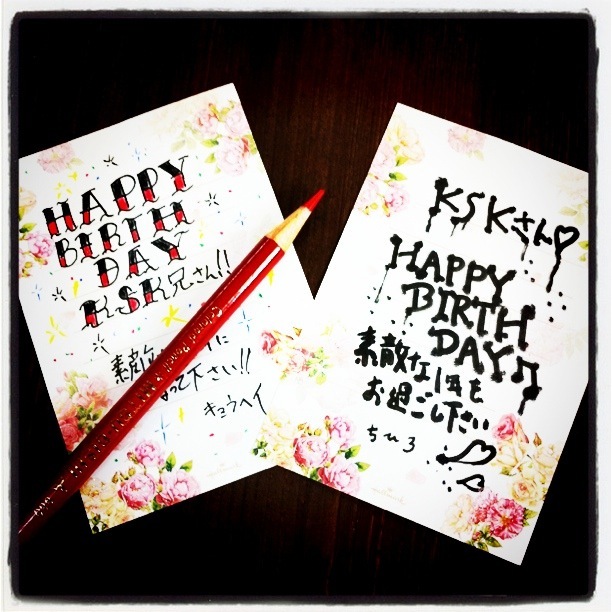 HAPPY
BIRTH
DAY
KSK兄さん!!
素敵
に
って下さい!!
キュウヘイ
KSKさん♡
HAPPY
BIRTH
DAY♫
素敵な1年を
お過ごし下さい
ちひろ